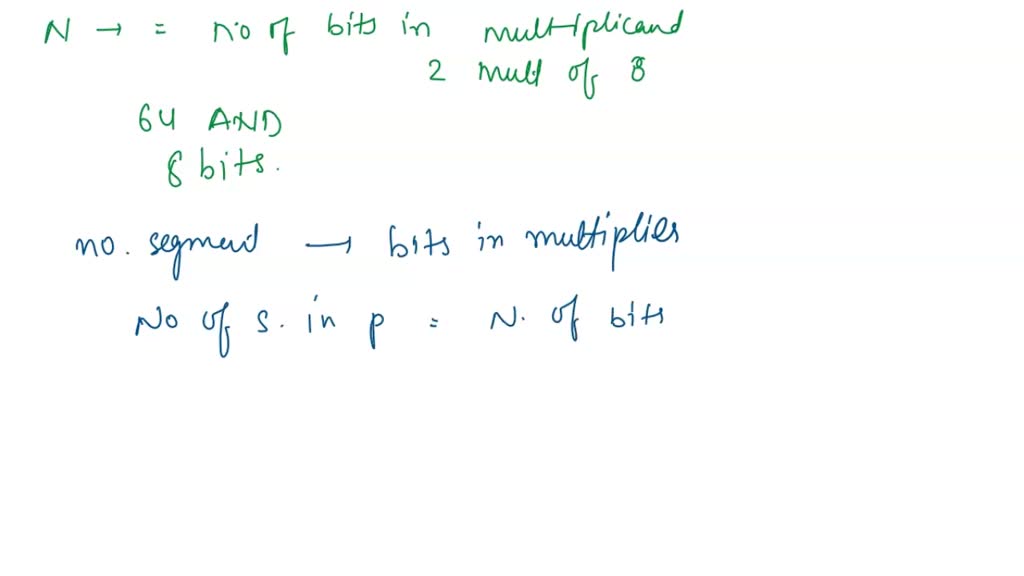 N → = no of bits in multiplicand
2 mult of 8
64 AND
8 bits.
no. segment → bits in multiplier
No of s. in p = N. of bits